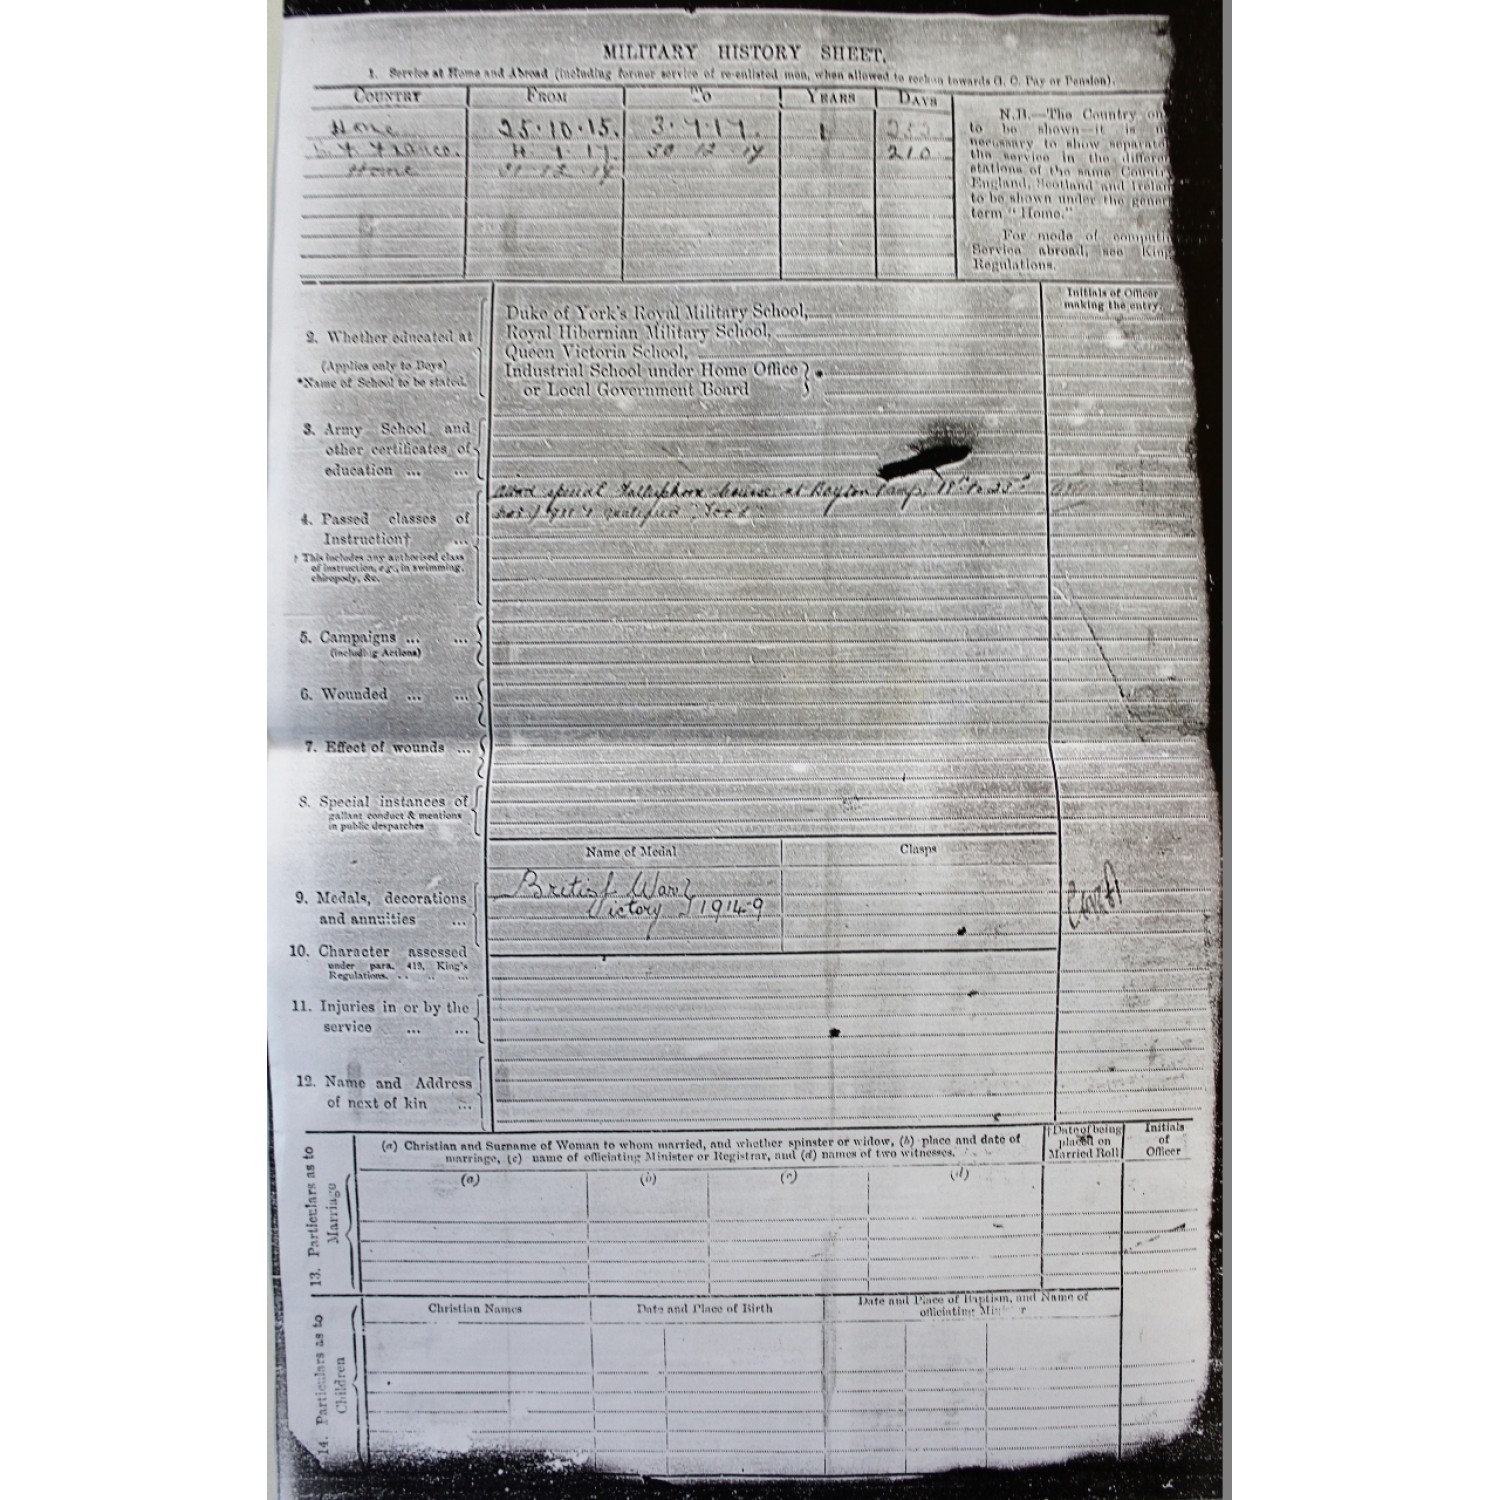 MILITARY HISTORY SHEET.
1. Service at Home and Abroad (including former service of re-enlisted men, when allowed to reckon towards G. C. Pay or Pension).
COUNTRY FROM TO YEARS DAYS
Home 25.10.15. 3.7.17. 1
France. 4. 7. 17. 30 12 17 210
Home 31 12 17
N.B.—The Country on
to be shown—it is
necessary to show separat
the service in the differe
stations of the same Count
England, Scotland and Irela
to be shown under the gene
term "Home."
For mode of computi
Service abroad, see King
Regulations.
Initials of Officer
making the entry.
2. Whether educated at
(Applies only to Boys)
*Name of School to be stated.
Duke of York's Royal Military School,
Royal Hibernian Military School,
Queen Victoria School,
Industrial School under Home Office } *
or Local Government Board
3. Army School and
other certificates of
education ... ...
4. Passed classes of
Instruction† ...
† This includes any authorised class
of instruction, e.g., in swimming,
chiropody, &c.
special at Camp, to
qualified
5. Campaigns ... ...
(including Actions)
6. Wounded ... ...
7. Effect of wounds ...
8. Special instances of
gallant conduct & mentions
in public despatches
Name of Medal Clasps
9. Medals, decorations
and annuities ...
British War &
Victory 1914-9
10. Character assessed
under para. 419, King's
Regulations. .. .. ...
11. Injuries in or by the
service ... ...
12. Name and Address
of next of kin ...
13. Particulars as to
Marriage
(a) Christian and Surname of Woman to whom married, and whether spinster or widow, (b) place and date of
marriage, (c) name of officiating Minister or Registrar, and (d) names of two witnesses.
† Date of being
placed on
Married Roll
Initials
of
Officer
(a) (b) (c) (d)
14. Particulars as to
Children
Christian Names Date and Place of Birth
Date and Place of Baptism, and Name of
officiating Minister